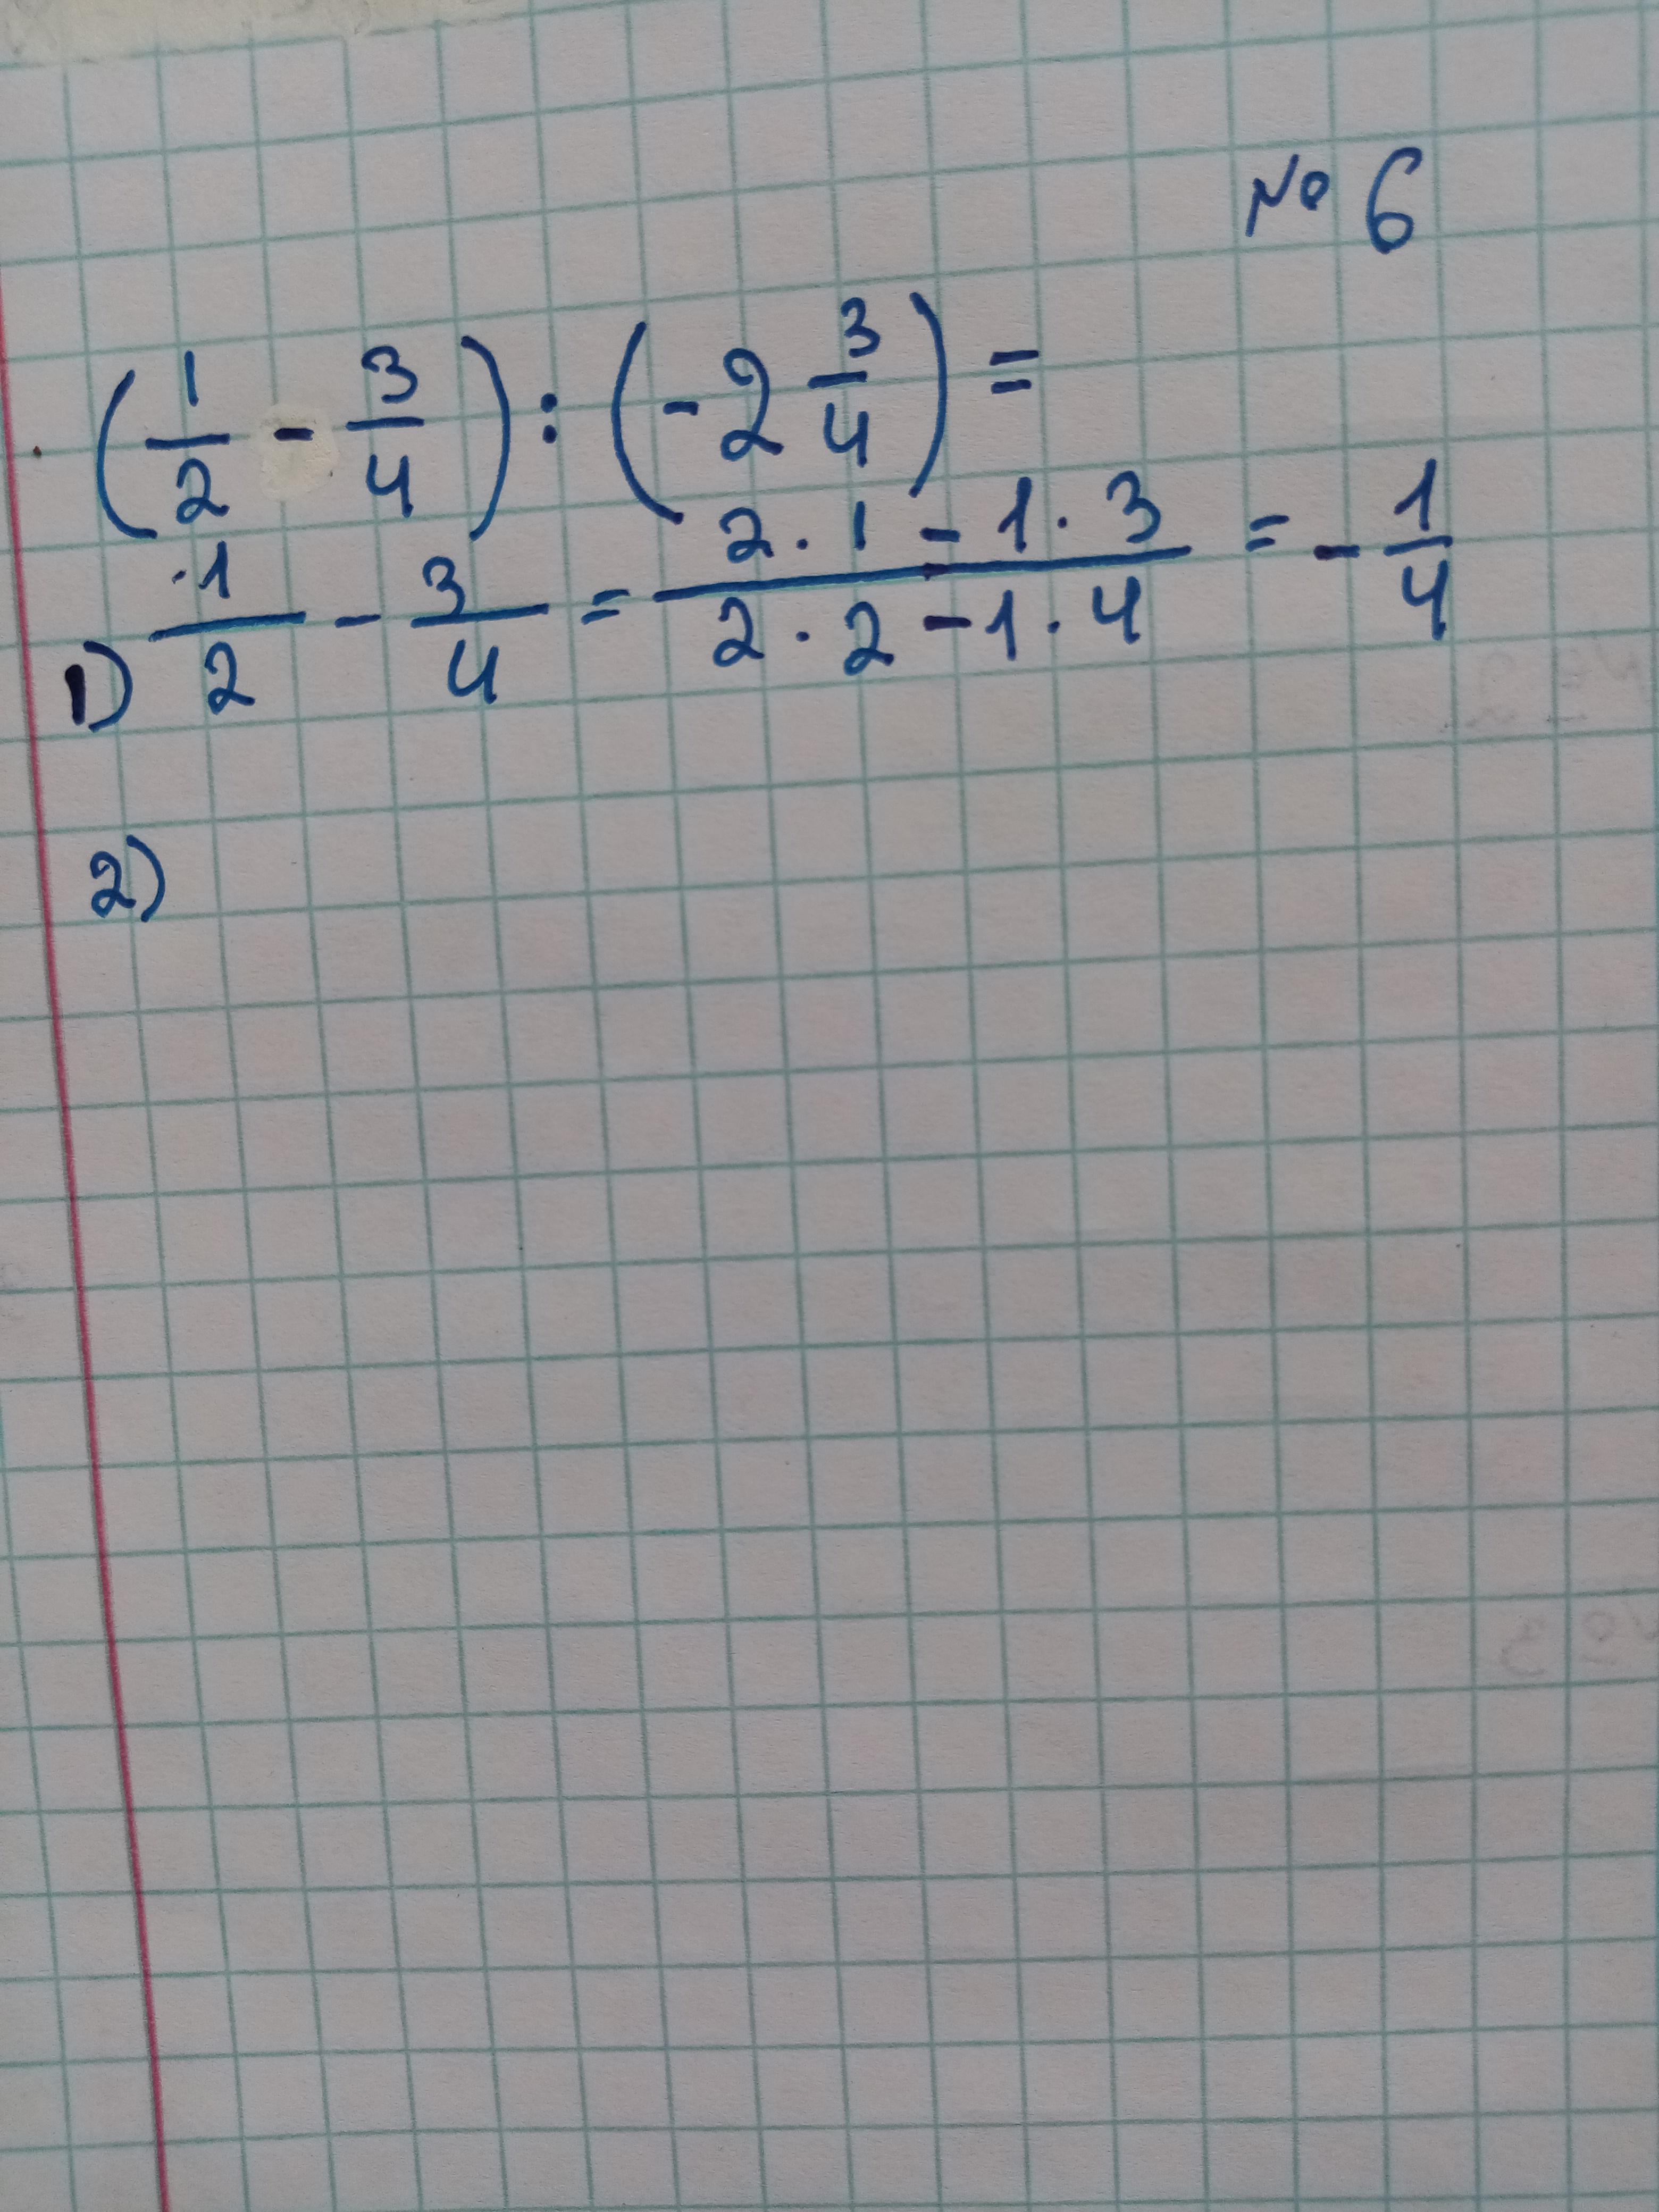 № 6
(1/2 - 3/4) : (-2 3/4) =
1) 1/2 - 3/4 = (2 · 1 - 1 · 3)/(2 · 2 - 1 · 4) = - 1/4
2)